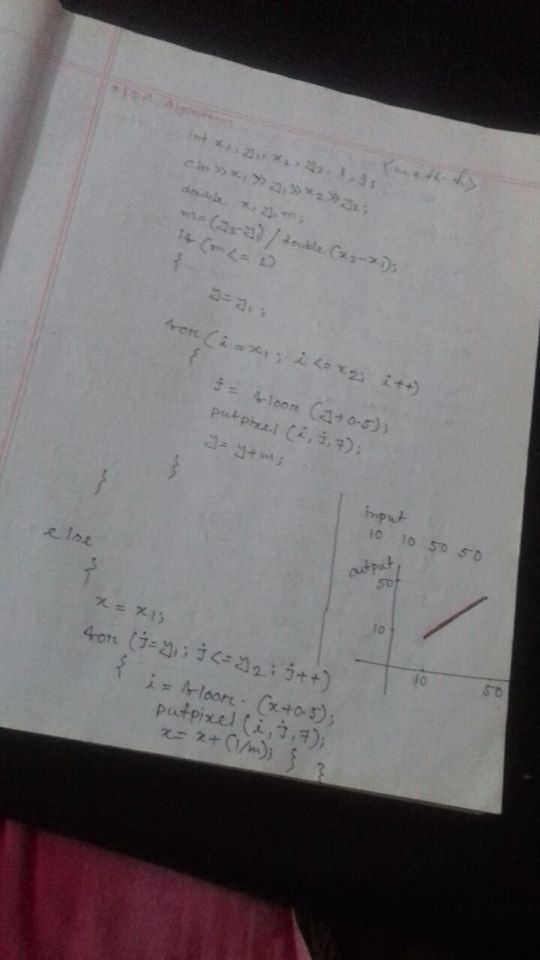 DDA Algorithm:
int x1, y1, x2, y2, i, j; <math.h>
cin>>x1>>y1>>x2>>y2;
double x, y, m;
m=(y2-y1)/double(x2-x1);
if (m<=1)
{
y=y1;
for(i=x1; i<=x2; i++)
{
j= floor (y+0.5);
putpixel(i,j,7);
y=y+m;
}
}
else
{
x=x1;
for(j=y1; j<=y2; j++)
{
i=floor.(x+0.5);
putpixel(i,j,7);
x=x+(1/m); } }
input
10 10 50 50
output
50
10
10 50